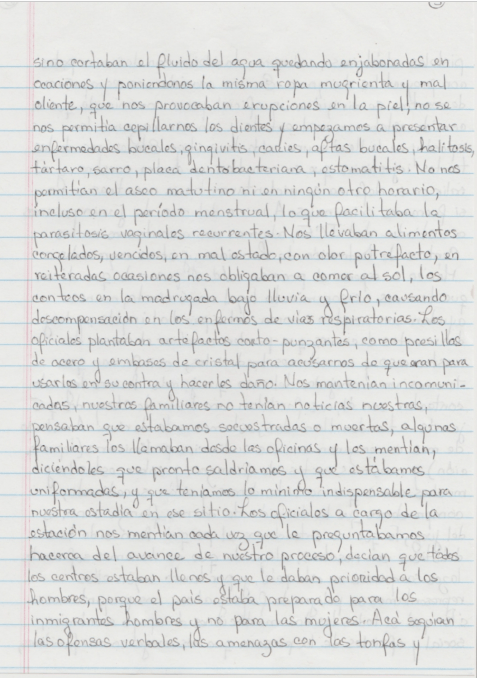 sino cortaban el fluido del agua quedando enjabonadas en
ocaciones y poniendonos la misma ropa mugrienta y mal
oliente, que nos provocaban erupciones en la piel, no se
nos permitia cepillarnos los dientes y empezamos a presentar
enfermedades bucales, gingivitis, caries, aftas bucales, halitosis,
tártaro, sarro, placa dentobacteriana, estomatitis. No nos
permitían el aseo matutino ni en ningún otro horario,
incluso en el período menstrual, lo que facilitaba la
parasitosis vaginales recurrentes. Nos llevaban alimentos
congelados, vencidos, en mal estado, con olor putrefacto, en
reiteradas ocasiones nos obligaban a comer al sol, los
conteos en la madrugada bajo lluvia y frío, causando
descompensación en los enfermos de vías respiratorias. Los
oficiales plantaban artefactos corto-punzantes, como presillas
de acero y embases de cristal para acusarnos de que eran para
usarlos en su contra y hacerles daño. Nos mantenian incomuni-
cadas, nuestros familiares no tenían noticias nuestras,
pensaban que estabamos secuestradas o muertas, algunas
familiares los llamaban desde las oficinas y los mentían,
diciéndoles que pronto saldriamos y que estábamos
uniformadas, y que teníamos lo mínimo indispensable para
nuestra estadía en ese sitio. Los oficiales a cargo de la
estación nos mentían cada vez que le preguntabamos
hacerca del avance de nuestro proceso, decían que todos
los centros estaban llenos y que le daban prioridad a los
hombres, porque el país estaba preparado para los
inmigrantes hombres y no para las mujeres. Acá seguian
las ofensas verbales, las amenazas con las tonfas y